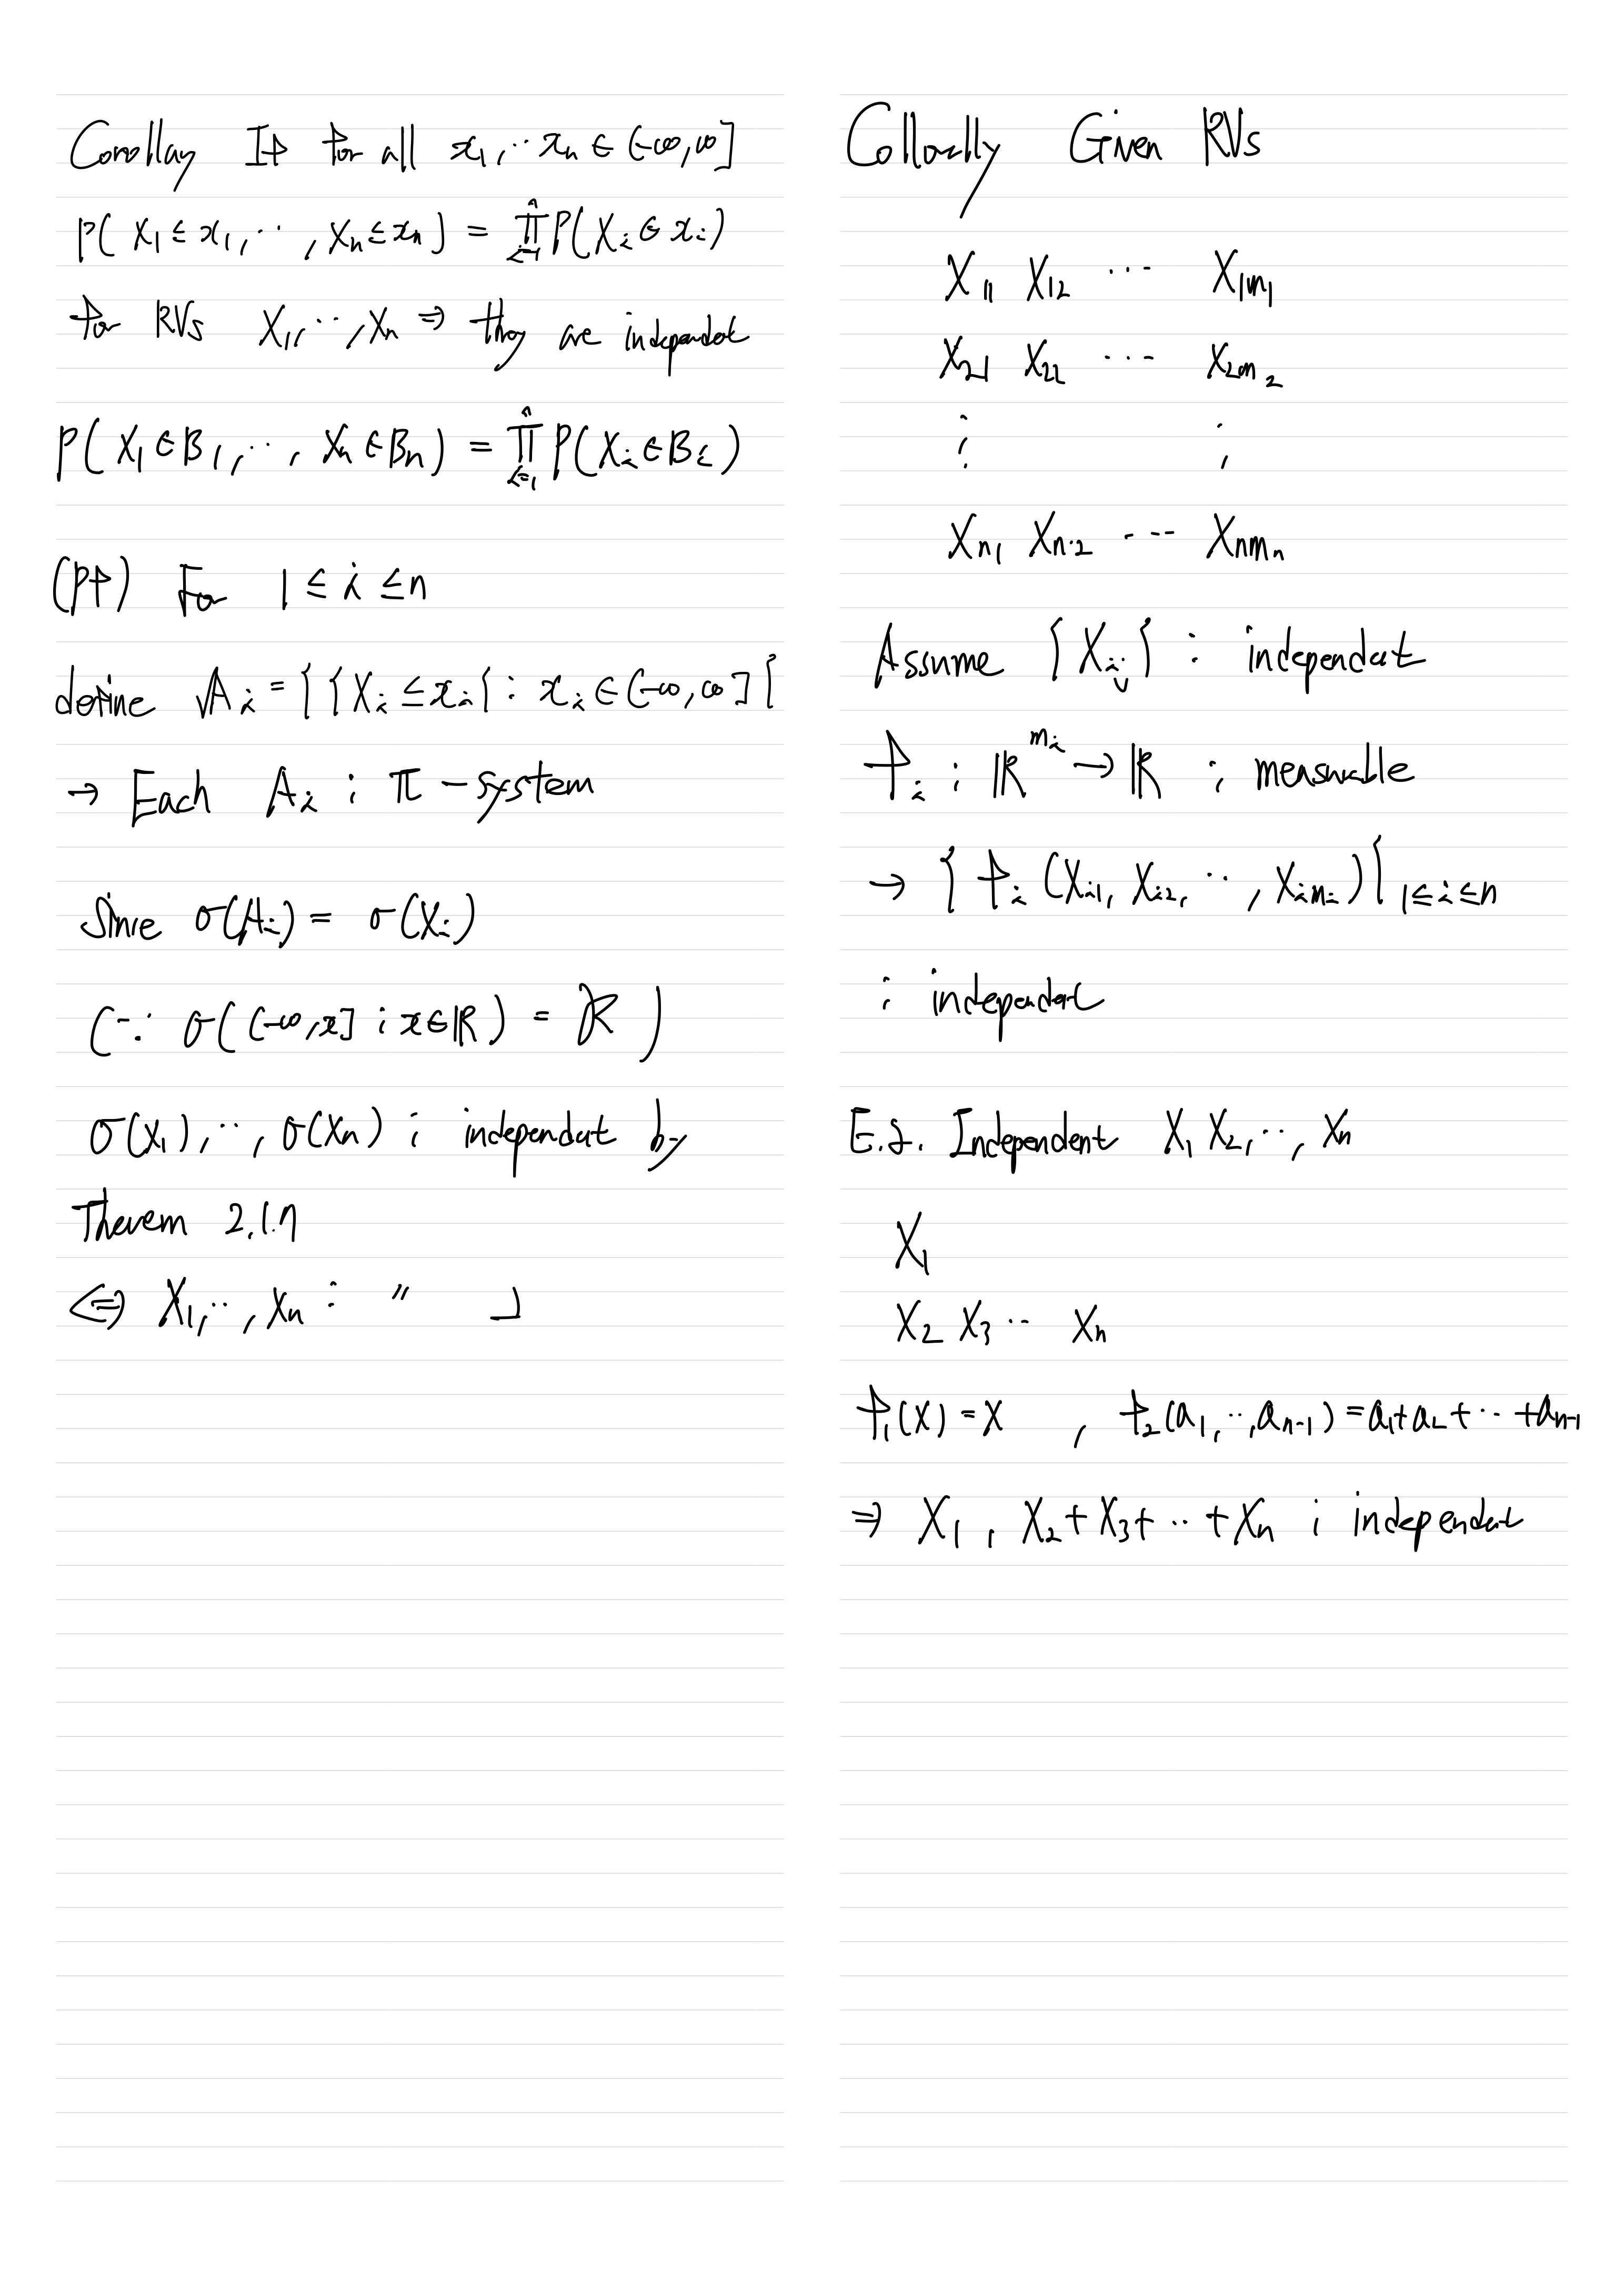 Corollay If for all x₁,‥xₙ ∈ (-∞,∞]
P( X₁ ≤ x₁,‥, Xₙ ≤ xₙ ) = ∏ⁿᵢ₌₁ P(Xᵢ ∈ xᵢ)
for RVs X₁,‥,Xₙ ⇒ they are independent
P( X₁ ∈ B₁,‥, Xₙ ∈ Bₙ ) = ∏ⁿᵢ₌₁ P(Xᵢ ∈ Bᵢ)
(Pf) For 1 ≤ i ≤ n
define Aᵢ = { {Xᵢ ≤ xᵢ} : xᵢ ∈ (-∞,∞] }
→ Each Aᵢ : π-system
Since σ(Aᵢ) = σ(Xᵢ)
(∵ σ( (-∞,x] : x∈ℝ ) = R )
σ(X₁),‥,σ(Xₙ) : independent by
Theorem 2.1.7
⇔ X₁,‥,Xₙ : 〃 」
Collorally Given RVs
X₁₁ X₁₂ ⋯ X₁ₘ₁
X₂₁ X₂₂ ⋯ X₂ₘ₂
⋮ ⋮
Xₙ₁ Xₙ.₂ ⋯ Xₙₘₙ
Assume {Xᵢⱼ} : independent
fᵢ : ℝ^mᵢ → ℝ : measurable
→ { fᵢ (Xᵢ₁, Xᵢ₂,‥, Xᵢₘᵢ) }₁≤ᵢ≤ₙ
: independent
E.g. Independent X₁ X₂,‥, Xₙ
X₁
X₂ X₃ ‥ Xₙ
f₁(x) = x , f₂(a₁,‥,aₙ₋₁) = a₁+a₂+‥+aₙ₋₁
⇒ X₁ , X₂+X₃+‥+Xₙ : independent